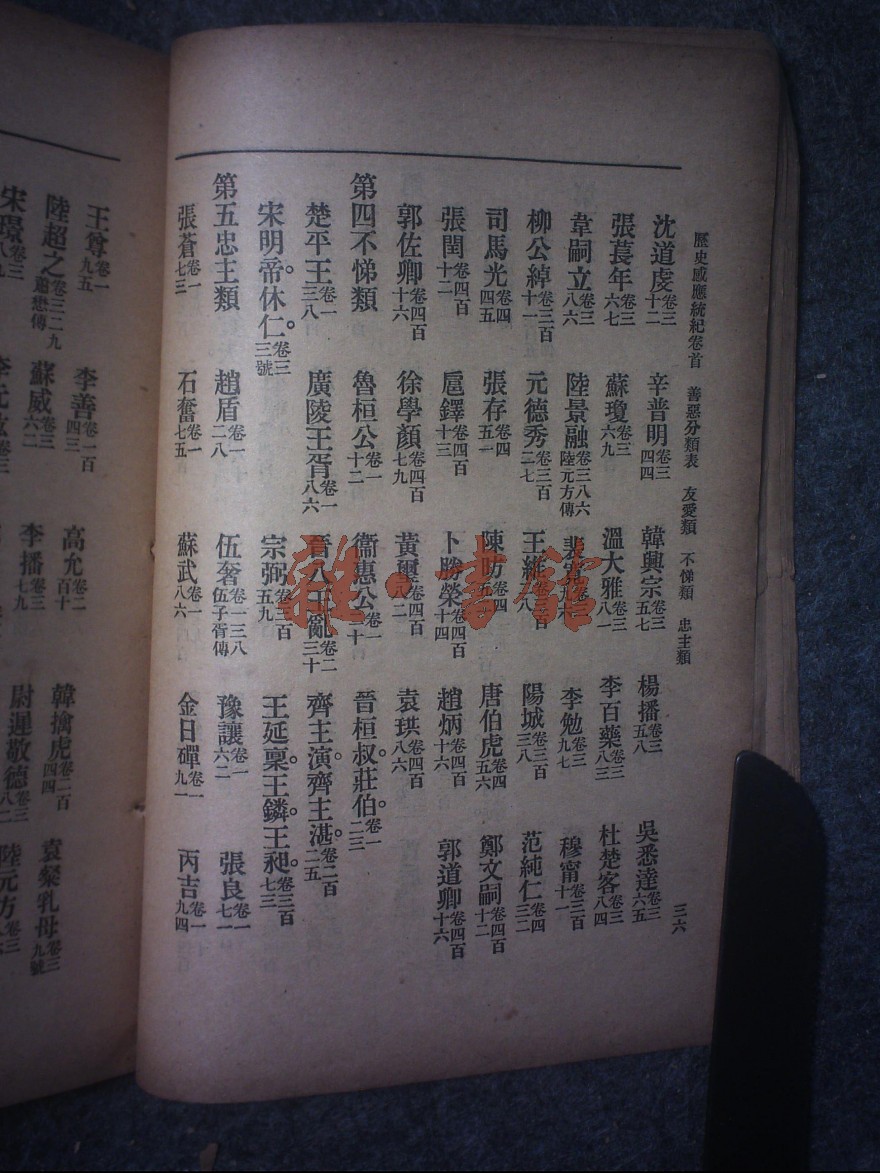 歷史感應統紀卷首　善惡分類表　友愛類　不悌類　忠主類　三六
沈道虔卷三十二　辛普明卷三四四　韓興宗卷三五七　楊播卷三五八　吳悉達卷三六五
張萇年卷三六七　蘇瓊卷三六九　溫大雅卷三八一　李百藥卷三八三　杜楚客卷三八四
韋嗣立卷三八六　陸景融卷三八六陸元方傳　裴寬　李勉卷三九七　穆甯卷三百十二
柳公綽卷三百十一　元德秀卷三百二七　王維　陽城卷三百三八　范純仁卷四三二
司馬光卷四四五　張存卷四五一　陳昉卷四　唐伯虎卷四五六　鄭文嗣卷四百十二
張閏卷四百十二　扈鐸卷四百十三　卜勝榮卷四百十四　趙炳卷四百十六　郭道卿卷四百十六
郭佐卿卷四百十六　徐學顏卷四百七九　黃璽卷四百八二　袁珙卷四百八六
第四不悌類　魯桓公卷一十二　衞惠公卷一二十　晉桓叔。莊伯。卷一二三
楚平王卷一三八　廣陵王胥卷一八六　晉八王亂卷二三十　齊主演。齊主湛。卷二百二五
宋明帝。休仁。卷三三號　宗弼卷三百五九　王延稟。王鏻。王昶。卷三百七三
第五忠主類　趙盾卷一二八　伍奢卷一三八伍子胥傳　豫讓卷一六二　張良卷一七一
張蒼卷一七三　石奮卷一七五　蘇武卷一八六　金日磾卷一九一　丙吉卷一九四
王尊卷一九五　李善卷一百四三　高允卷二百十　韓擒虎卷二百四四　袁粲乳母卷三九號
陸超之卷三二九蕭懋傳　蘇威卷三六二　李播卷三七九　尉遲敬德卷三八二　陸元方卷三八六
宋璟卷三八九
雜·書館